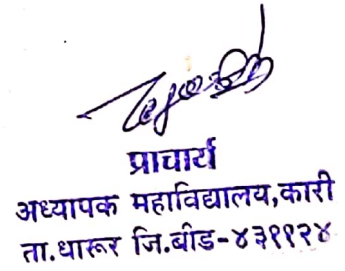 प्राचार्य
अध्यापक महाविद्यालय,कारी
ता.धारूर जि.बीड-४३११२४